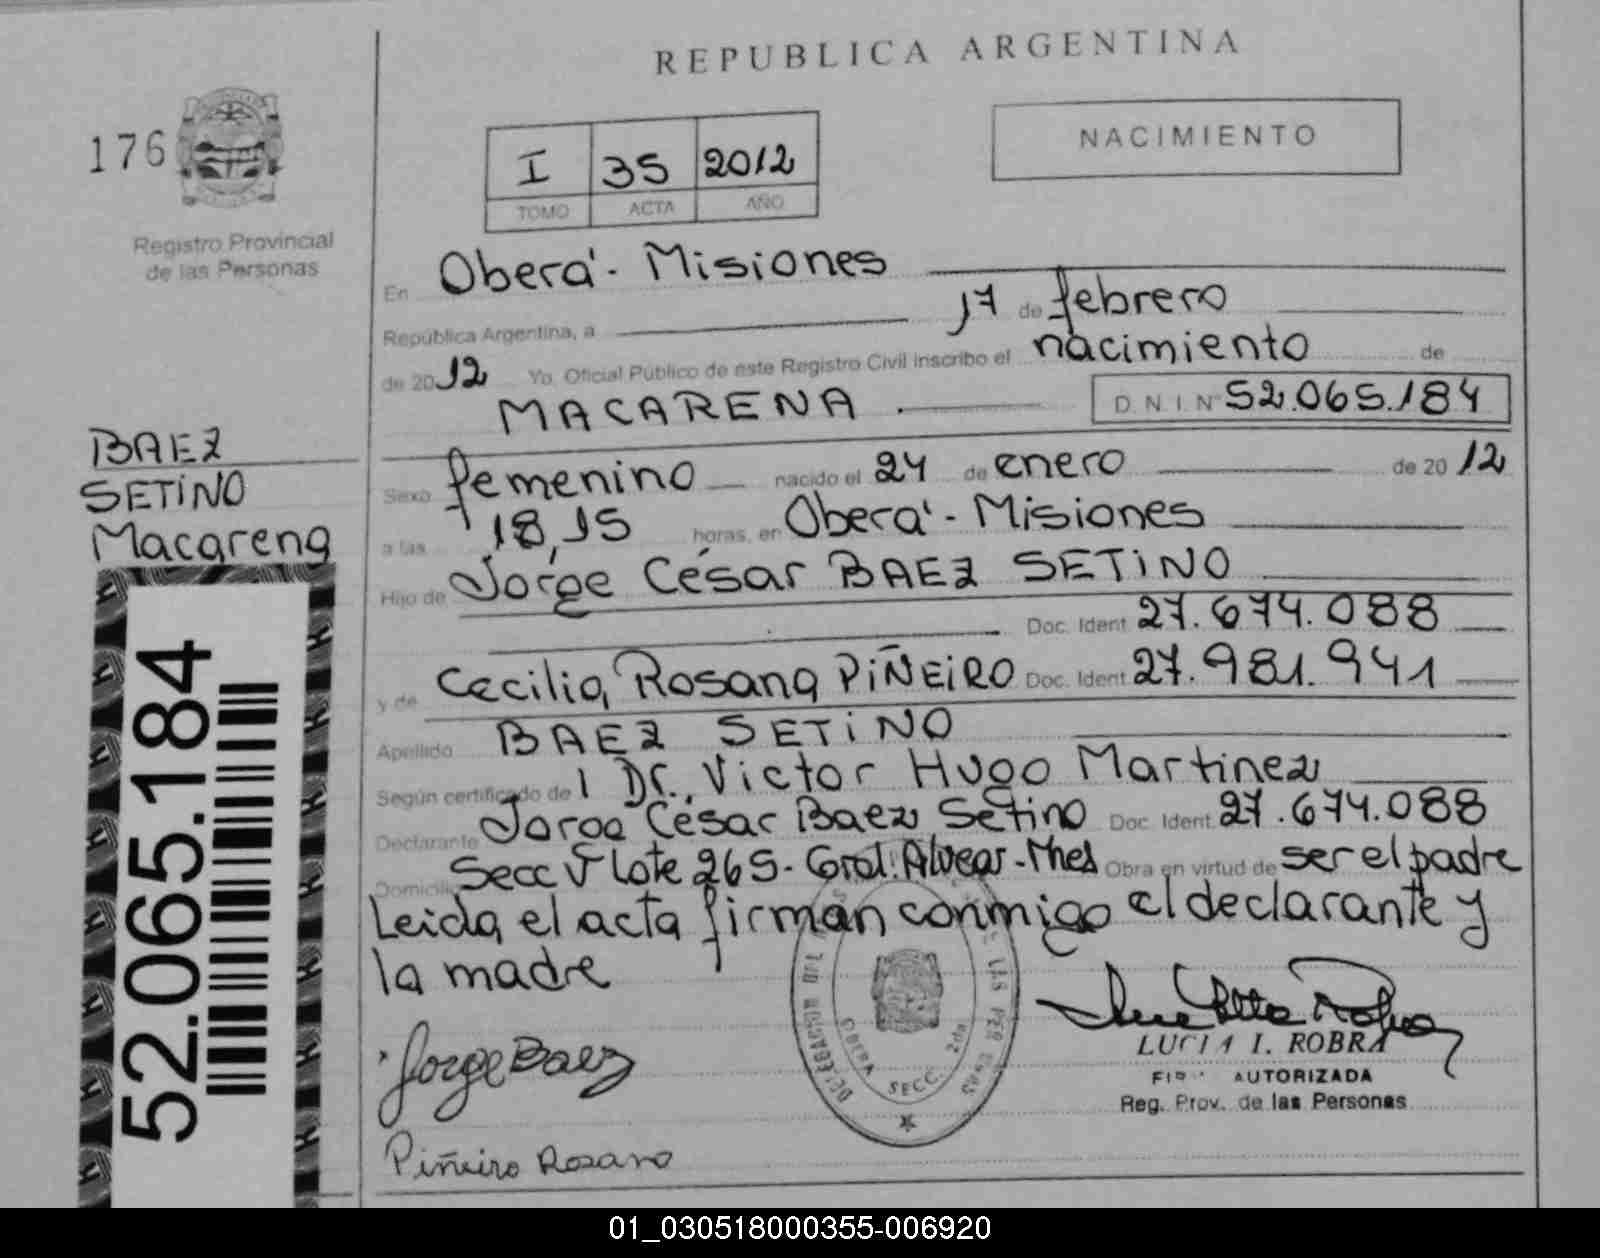 REPUBLICA ARGENTINA
176
NACIMIENTO
I 35 2012
TOMO ACTA AÑO
Registro Provincial
de las Personas
En Oberá - Misiones
República Argentina, a 17 de febrero
de 2012 Yo, Oficial Público de este Registro Civil inscribo el nacimiento de
MACARENA . D.N.I. Nº 52.065.184
BAEZ
SETINO
Macarena
Sexo femenino nacido el 24 de enero de 2012
a las 18,15 horas, en Oberá - Misiones
Hijo de Jorge César BAEZ SETINO
Doc. Ident. 27.674.088
y de Cecilia Rosana PIÑEIRO Doc. Ident. 27.981.941
Apellido BAEZ SETINO
Según certificado de 1 Dr. Victor Hugo Martinez
Declarante Jorge César Baez Setino Doc. Ident. 27.674.088
Domicilio Secc V Lote 265 - Gral. Alvear - Mnes Obra en virtud de ser el padre
Leida el acta firman conmigo el declarante y
la madre
52.065.184
Jorge Baez
Piñeiro Rosana
DELEGACION
OBERA SECC. 2da
LUCIA I. ROBRA
AUTORIZADA
Reg. Prov. de las Personas
01_030518000355-006920